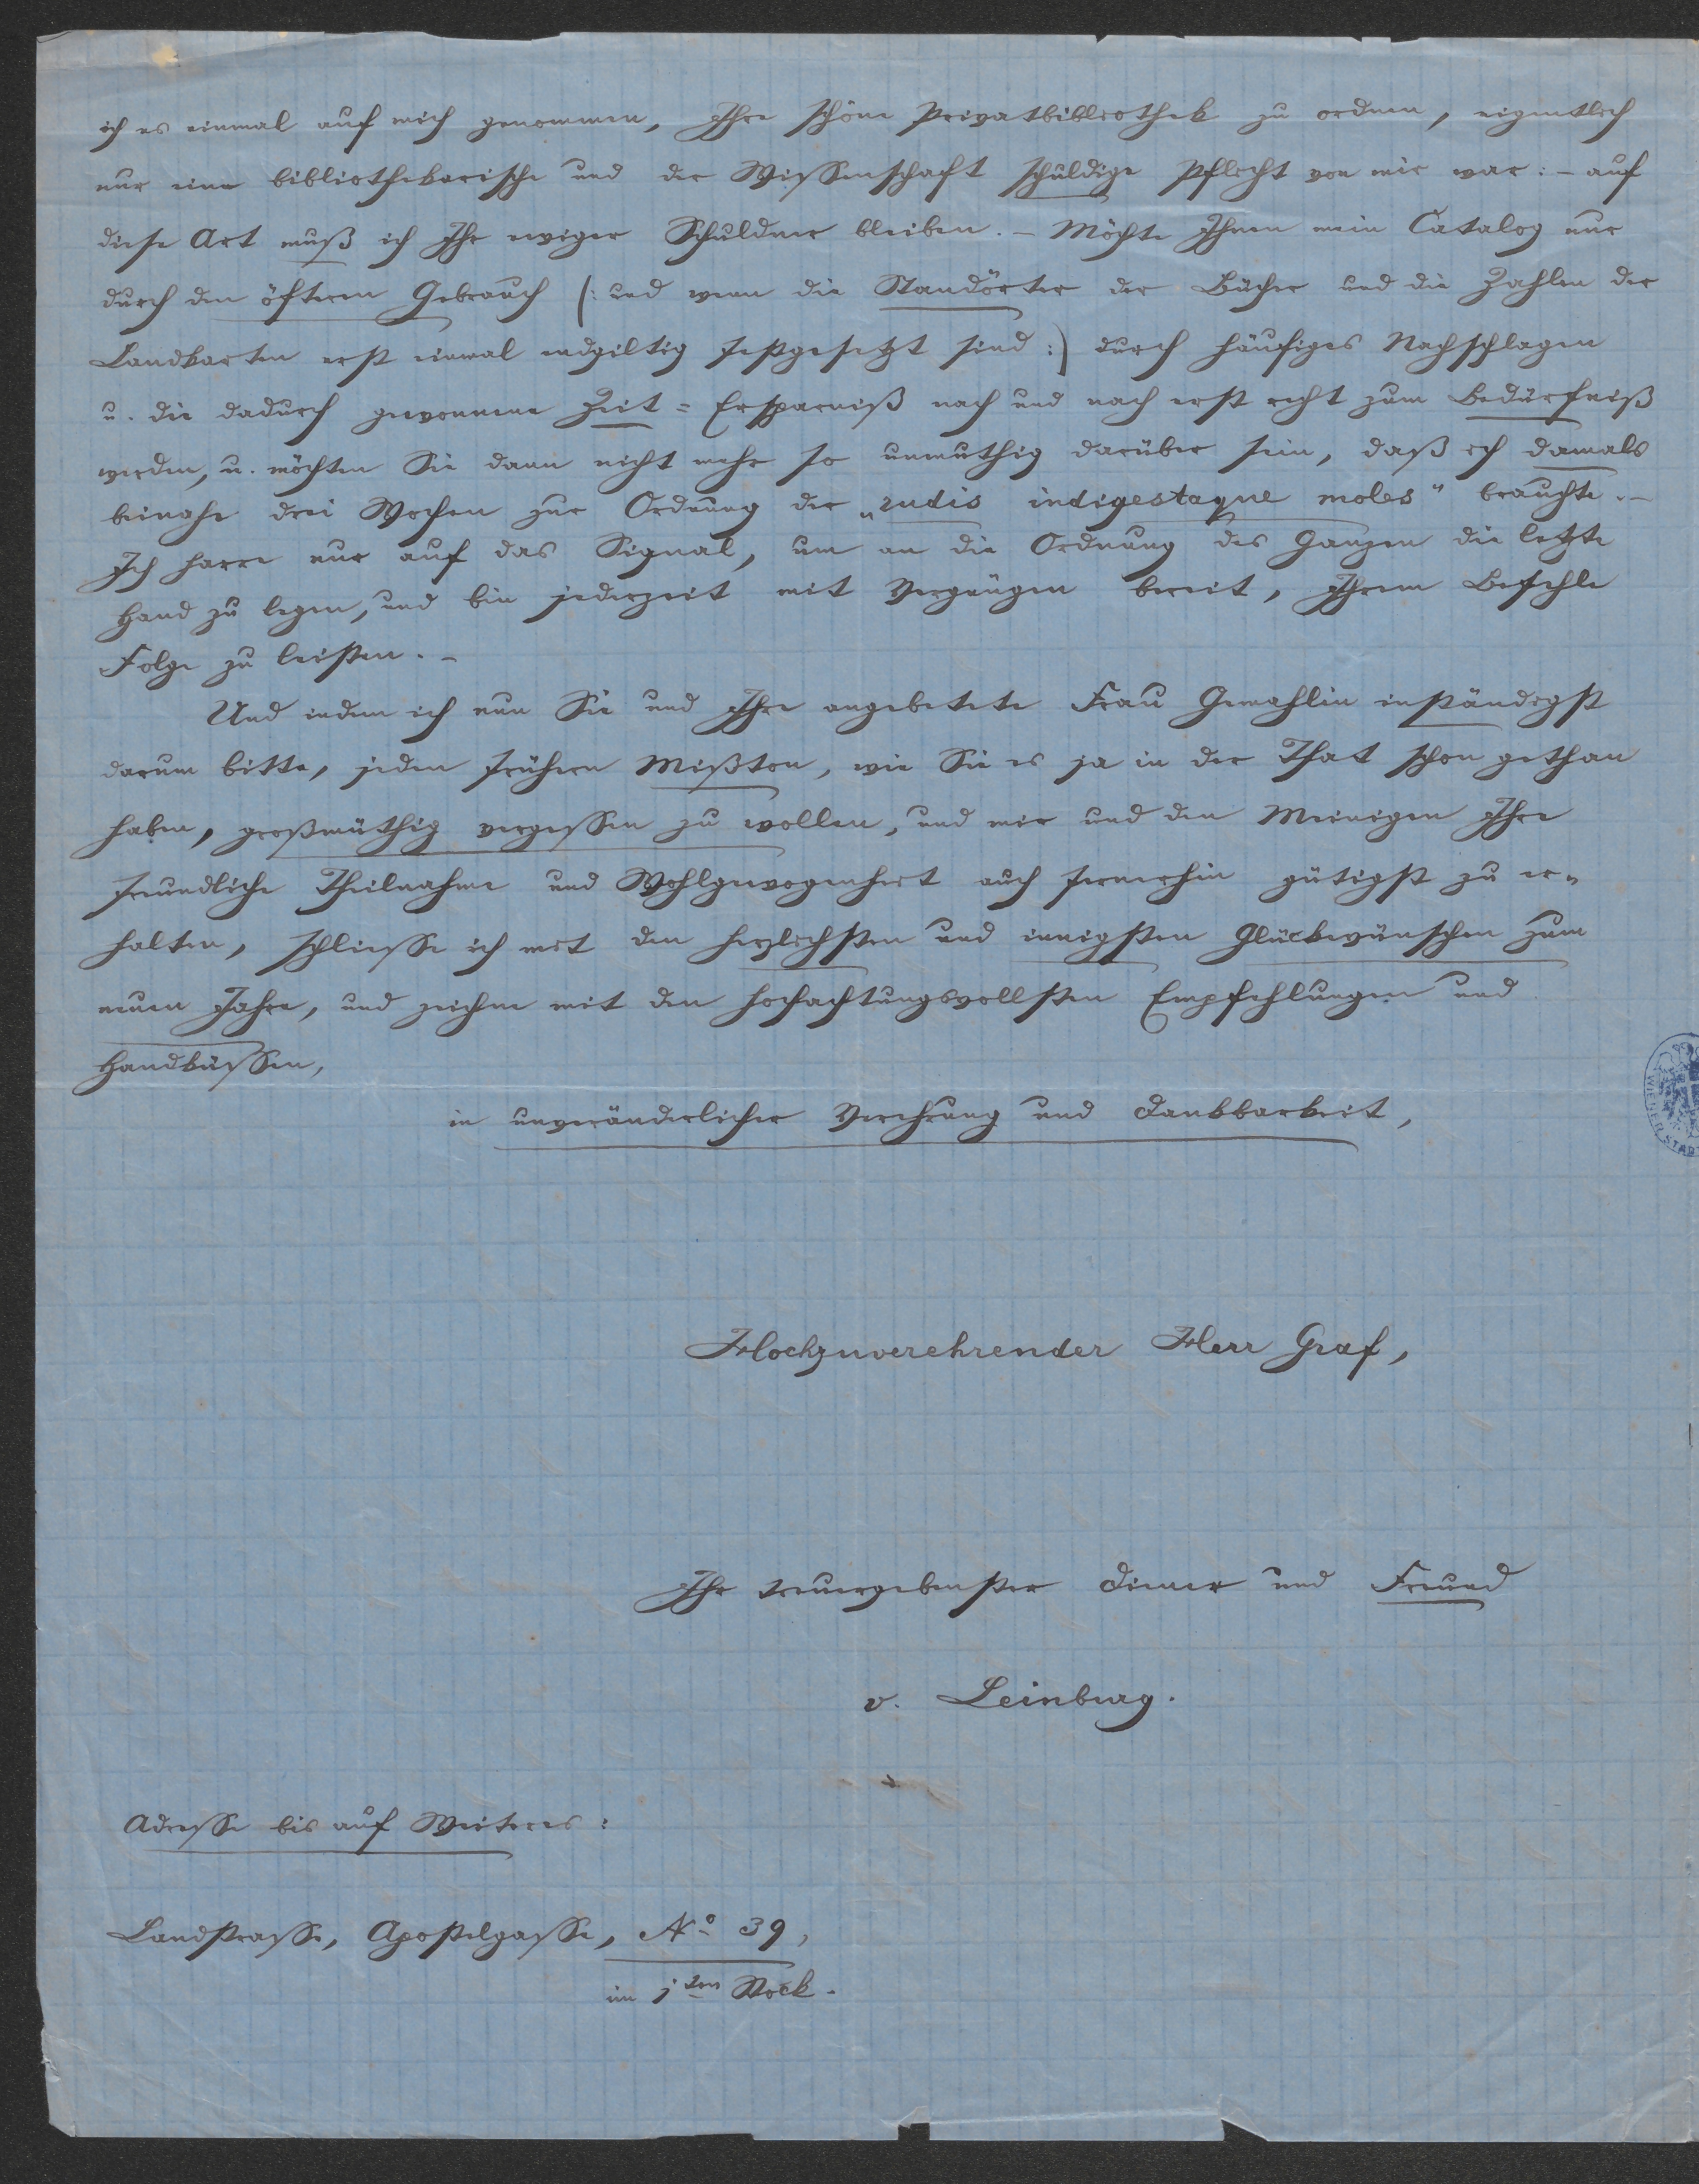 ich es einmal auf mich genommen, Ihre schöne Privatbibliothek zu ordnen, eigentlich
nur eine bibliothekarische und der Wissenschaft schuldige Pflicht von mir war: – auf
diese Art muß ich Ihr ewiger Schuldner bleiben. – Möchte Ihnen mein Catalog nur
durch den öfteren Gebrauch (: und wenn die Standörter der Bücher und die Zahlen der
Landkarten erst einmal endgiltig festgesetzt sind :) durch häufiges Nachschlagen
u. die dadurch gewonnene Zeit = Ersparniß nach und nach erst recht zum Bedürfniß
werden, u. möchten Sie dann nicht mehr so unmuthig darüber sein, daß ich damals
beinahe drei Wochen zur Ordnung der „rudis indigestaque moles" brauchte. –
Ich harre nur auf das Signal, um an die Ordnung des Ganzen die letzte
Hand zu legen, und bin jederzeit mit Vergnügen bereit, Ihrem Befehle
Folge zu leisten. –
Und indem ich nun Sie und Ihre angebetete Frau Gemahlin inständigst
darum bitte, jeden frühern Mißton, wie Sie es ja in der That schon gethan
haben, großmüthig vergessen zu wollen, und mir und den Meinigen Ihre
freundliche Theilnahme und Wohlgewogenheit auch fernerhin gütigst zu er-
halten, schliesse ich mit den herzlichsten und innigsten Glückwünschen zum
neuen Jahre, und zeichne mit den hochachtungsvollsten Empfehlungen und
Handküssen,
in unveränderlicher Verehrung und Dankbarkeit,
Hochzuverehrender Herr Graf,
Ihr treuergebenster Diener und Freund
v. Leinburg.
Adresse bis auf Weiteres:
Landstrasse, Apostelgasse, No 39,
im 1ten Stock.
WIENER STAD